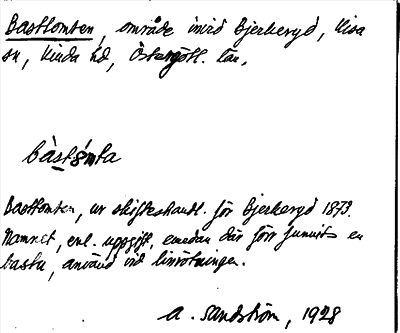 Basttomten, område invid Bjerkeryd, Kisa
sn, Kinda hd, Östergötl. län.
bàstòmta
Basttomten, ur skifteshandl. för Bjerkeryd 1873.
Namnet, enl. uppgift, emedan där förr funnits en
bastu, använd vid linrötningen.
A. Sandström, 1928